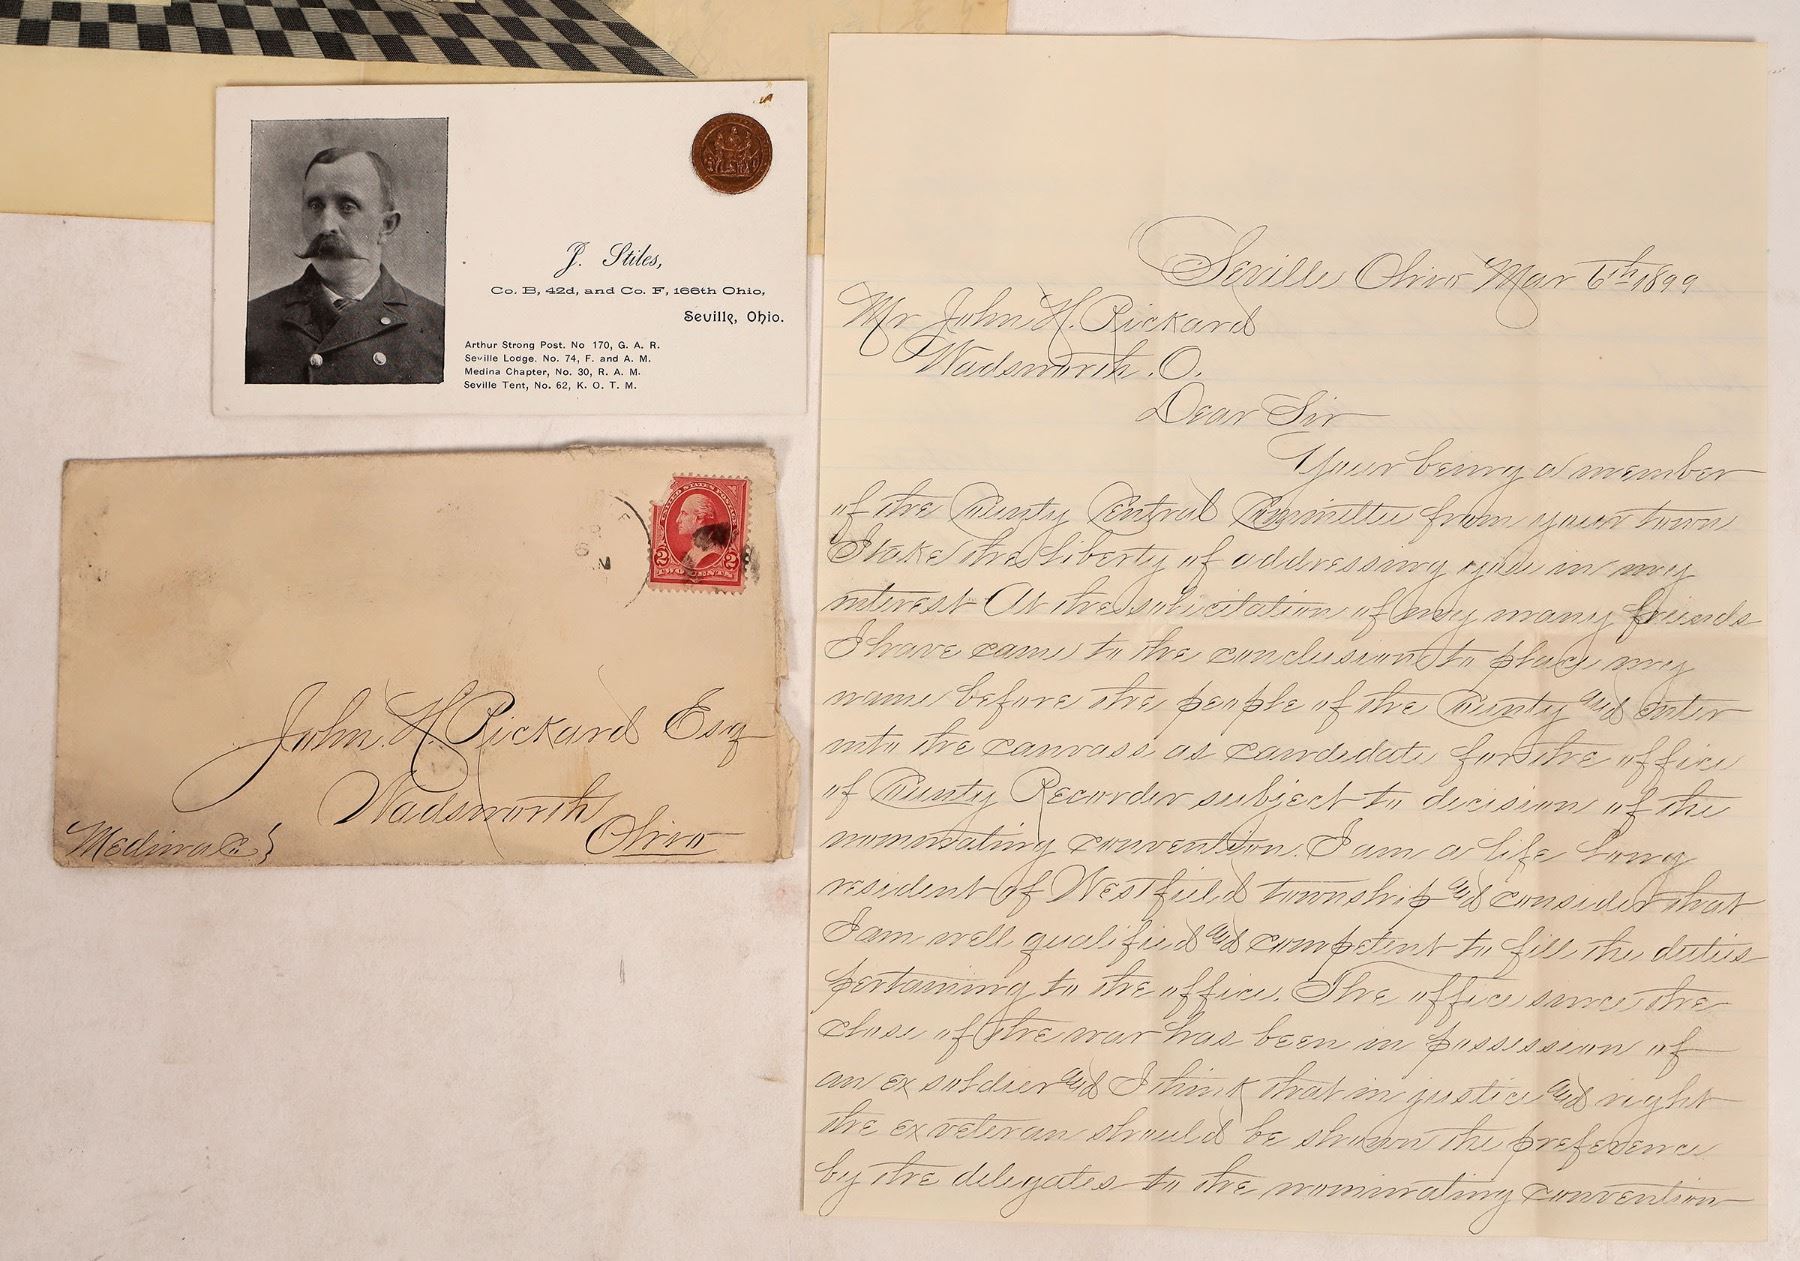 J. Stiles,
Co. B, 42d, and Co. F, 166th Ohio,
Seville, Ohio.
Arthur Strong Post. No 170, G. A. R.
Seville Lodge. No. 74, F. and A. M.
Medina Chapter, No. 30, R. A. M.
Seville Tent, No. 62, K. O. T. M.
UNITED STATES POSTAGE
2 2
TWO CENTS
John. H. Rickard Esq
Wadsworth
Ohio
Medina C
Seville Ohio Mar 6th 1899
Mr John H. Rickard
Wadsworth. O.
Dear Sir
Your being a member
of the County Central Committee from your town
I take the liberty of addressing you in my
interest At the solicitation of my many friends
I have came to the conclusion to place my
name before the people of the County and enter
into the canvass as candidate for the office
of County Recorder subject to decision of the
nominating convention. I am a life long
resident of Westfield township and consider that
I am well qualified and competent to fill the duties
pertaining to the office. The office since the
close of the war has been in possession of
an ex soldier and I think that in justice and right
the ex veteran should be shown the preference
by the delegates to the nominating convention